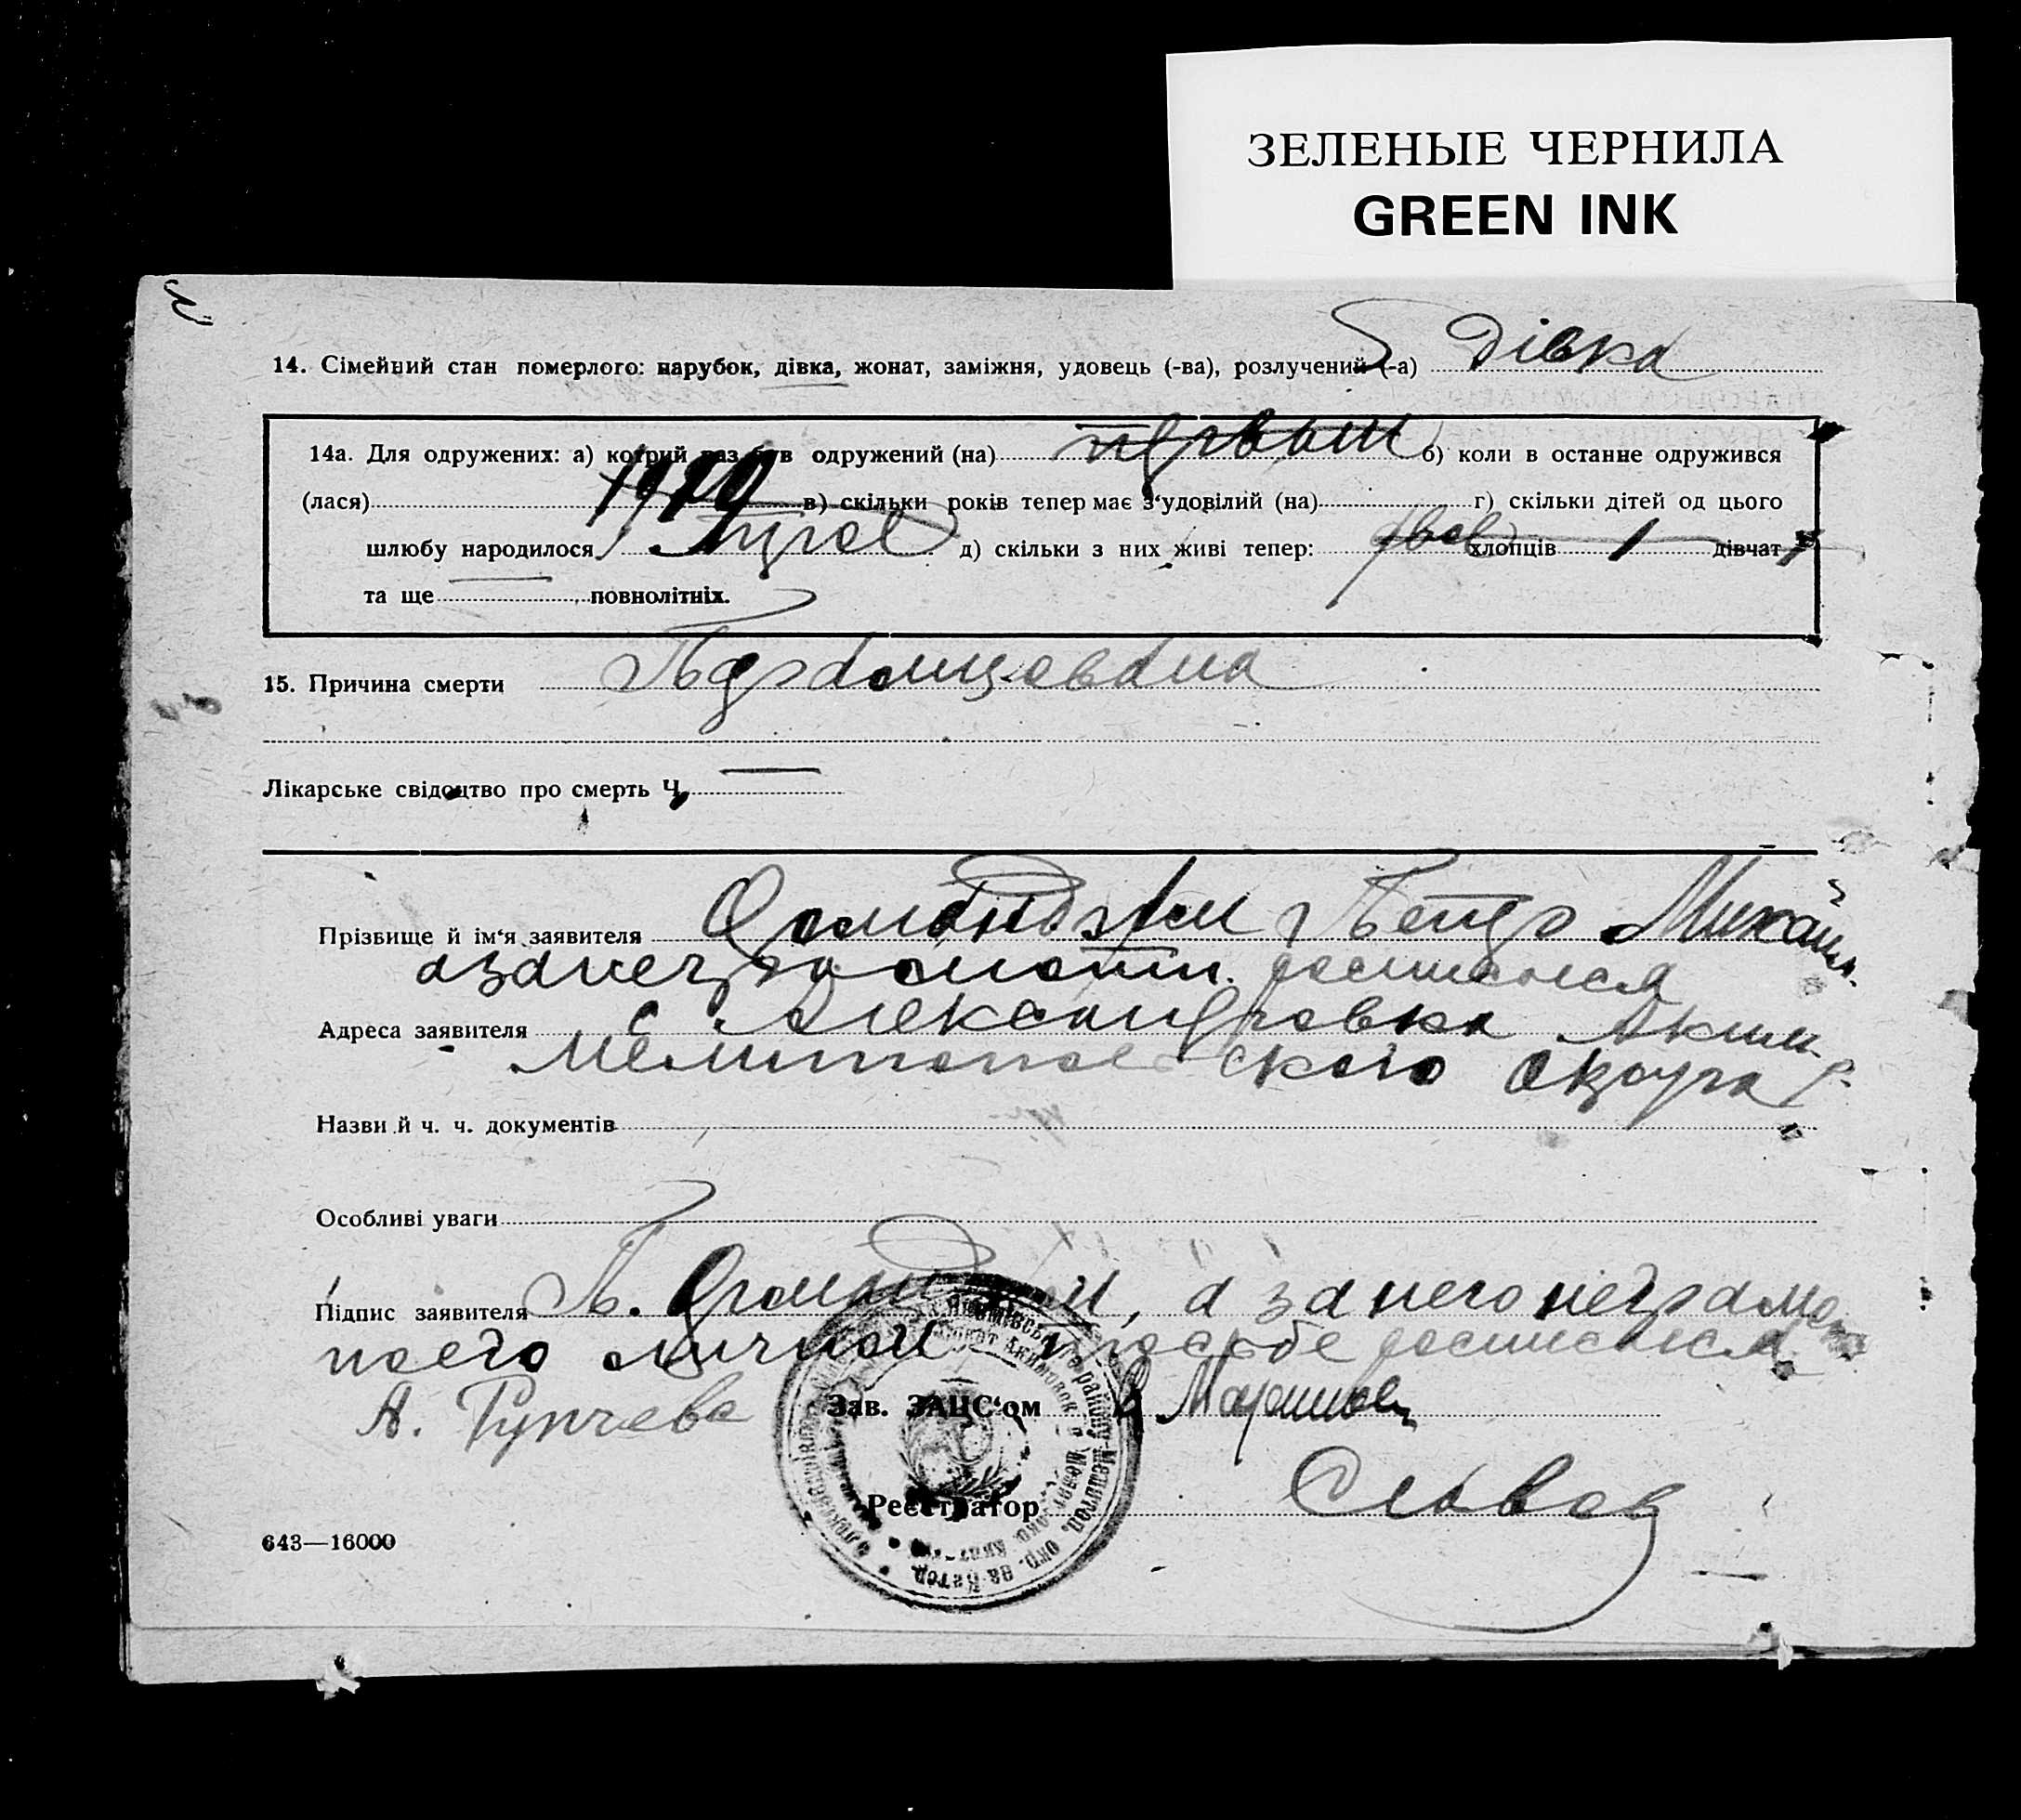 ЗЕЛЕНЫЕ ЧЕРНИЛА
GREEN INK
14. Сімейний стан померлого: парубок, дівка, жонат, заміжня, удовець (-ва), розлучений (-а) Дівка
14а. Для одружених: а) котрий раз був одружений (на) первый б) коли в останне одружився
(лася) в) скільки років тепер має з‘удовілий (на) г) скільки дітей од цього
шлюбу народилося д) скільки з них живі тепер: двое хлопців 1 дівчат 1
та ще повнолітніх.
15. Причина смерти
Лікарське свідоцтво про смерть Ч.
Прізбище й ім‘я заявителя Петр Михайл.
росписался
Адреса заявителя с Александровка Аким.
Мелитопольского Округа
Назви й ч. ч. документів
Особливі уваги
Підпис заявителя П. а за него неграмо
поего личной просьбе росписался
А. Рупчева
Зав. ЗАЦС‘ом
Реєстратор
643—16000